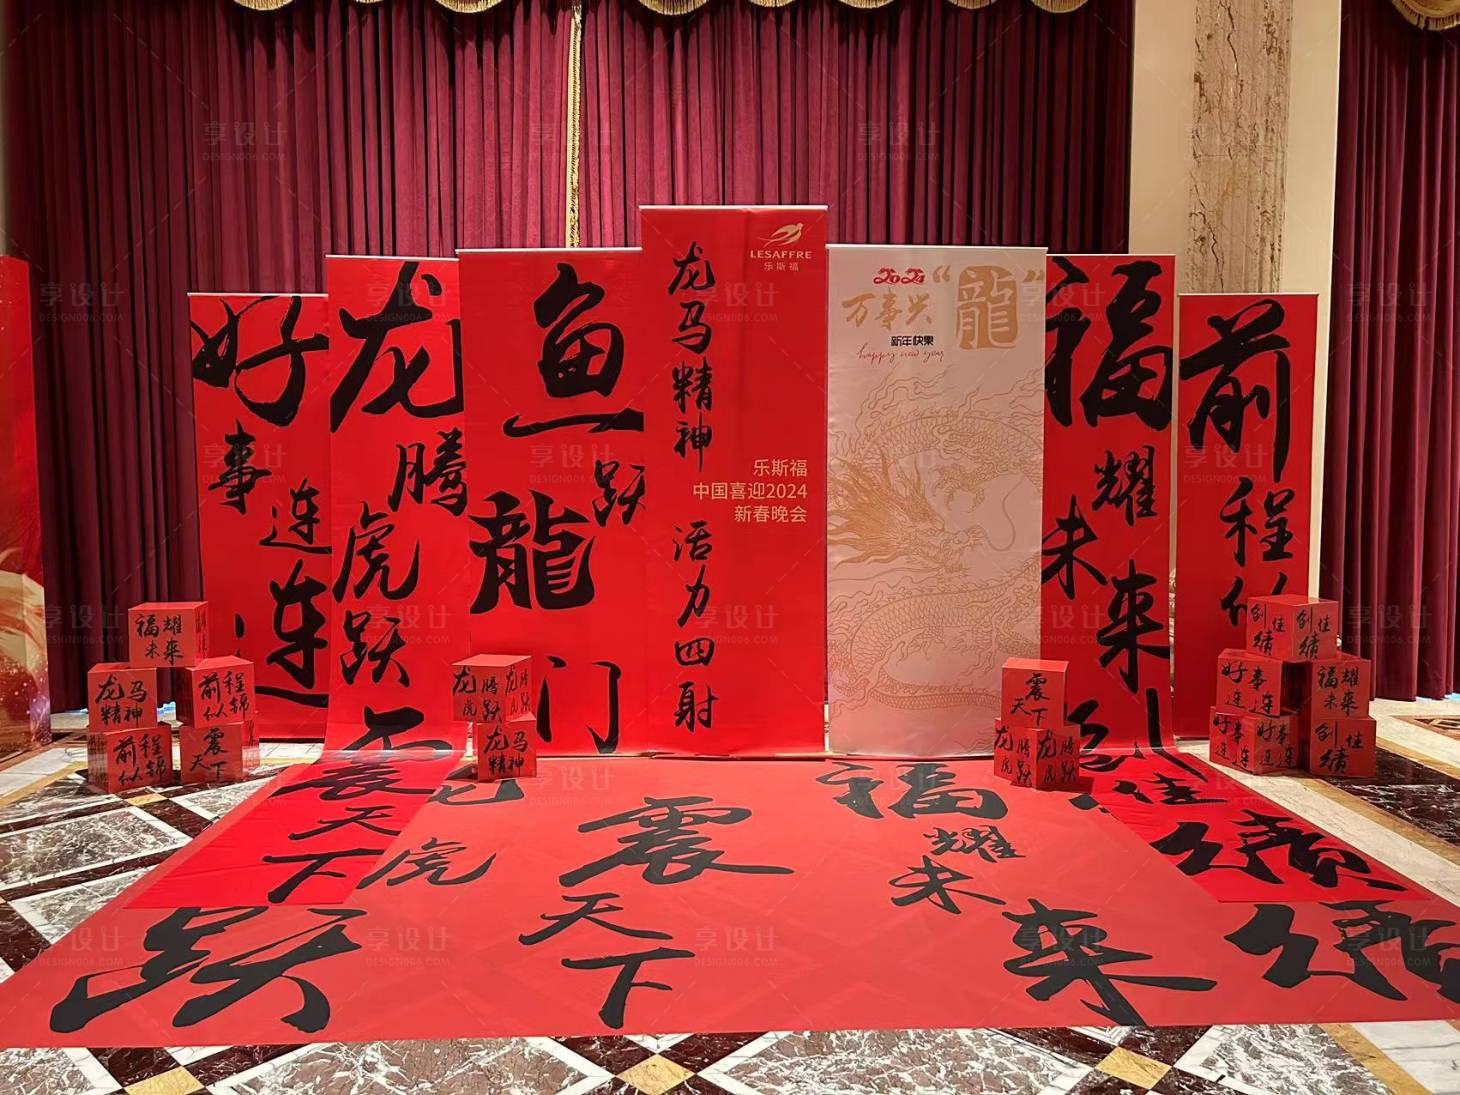 好事连连
龙腾虎跃
震天下
鱼跃龍门
龙马精神 活力四射
LESAFFRE
乐斯福
乐斯福
中国喜迎2024
新春晚会
2024
万事兴
“龍”
新年快樂
happy new year
福耀未来
创佳绩
前程似
福耀
未来
龙马
精神
前程
似锦
前程
似锦
震
天下
龙腾
虎跃
龙腾
虎跃
龙马
精神
震
天下
龙腾
虎跃
龙腾
虎跃
创佳
绩
创佳
绩
好事
连连
福耀
未来
好事
连连
好事
连连
创佳
绩
虎
跃
震
天
下
福
耀
未
来
绩
享设计
DESIGN006.COM